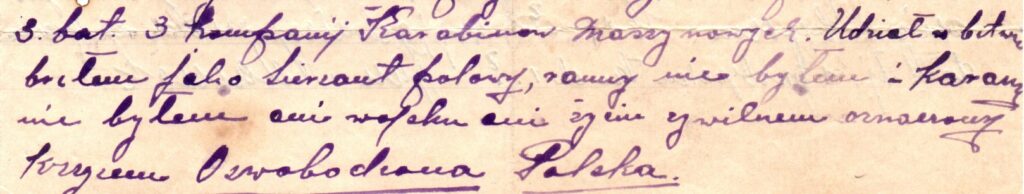 3. bat. 3 Kompanij Karabinow Maszynowych. Udział w bitwie
brałem jako Sierzant polowy, ranny nie byłem i karany
nie byłem ani wojsku ani życiu cywilnem oznaczony
krzyzem Oswobodzona Polska.